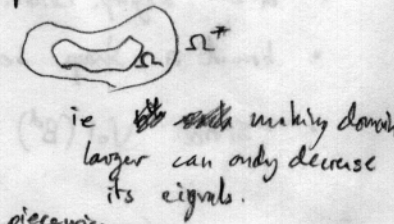 Ω Ω*
ie making domain
larger can only decrease
its eigvals.